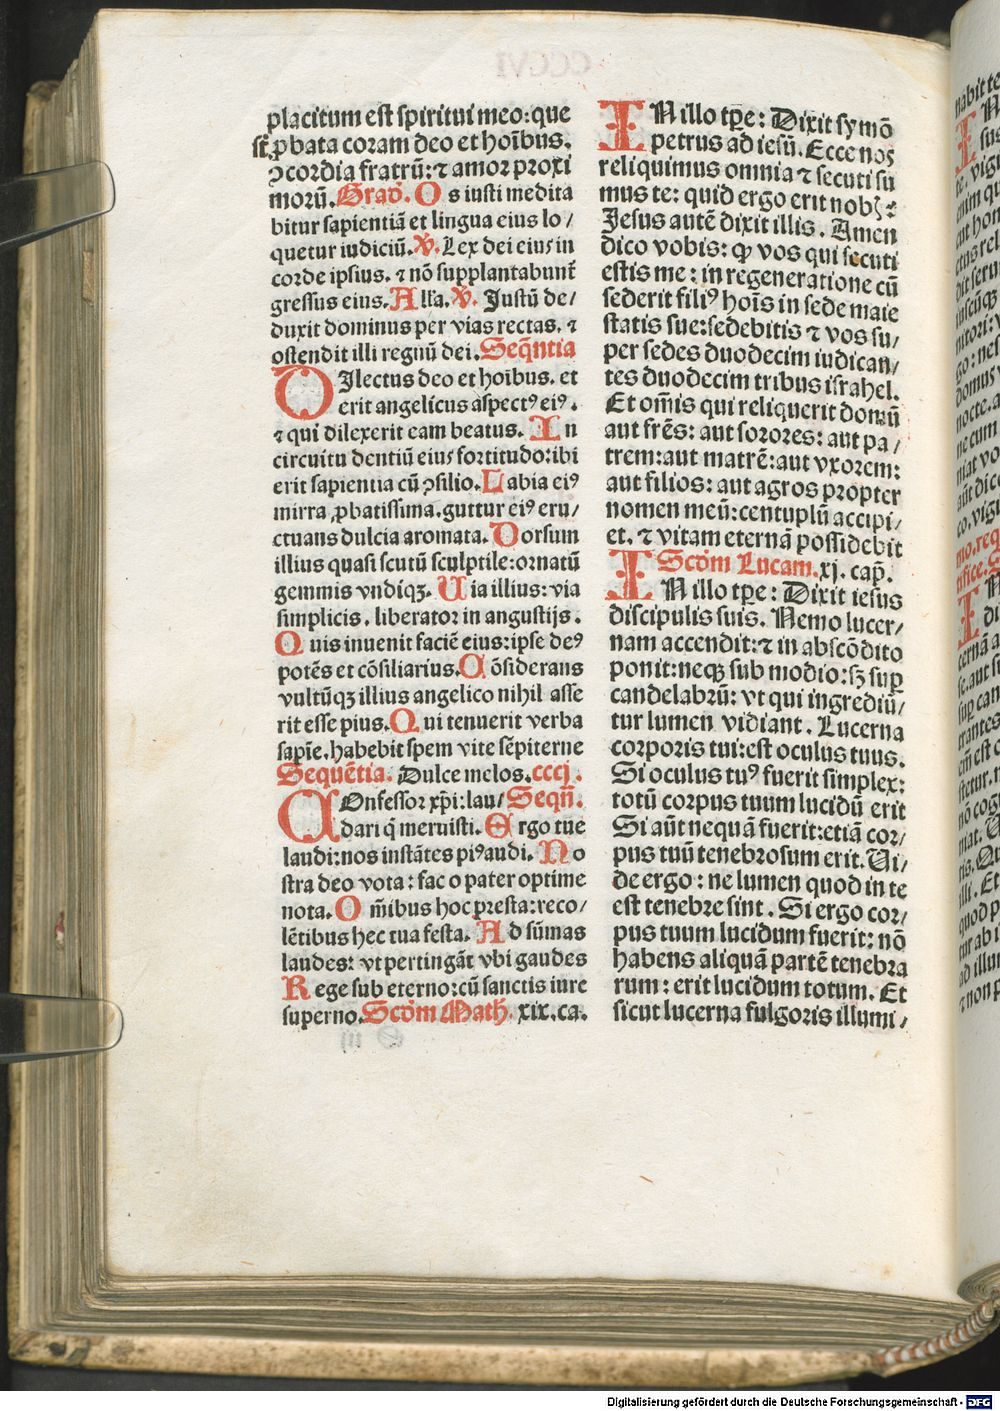 placitum est spiritui meo: que
st ꝓbata coram deo et hoībus.
ꝯcordia fratrū: ⁊ amor proxi
morū. Grad̄. Os iusti medita
bitur sapientiā et lingua eius lo/
quetur iudiciū. ℣. Lex dei eius in
corde ipsius. ⁊ nō supplantabunt̄
gressus eius. Alľa. ℣. Justū de/
duxit dominus per vias rectas. ⁊
ostendit illi regnū dei. Seq̄ntia
DIlectus deo et hoībus. et
erit angelicus aspectꝰ eiꝰ.
⁊ qui dilexerit eam beatus. In
circuitu dentiū eius fortitudo: ibi
erit sapientia cū ꝯsilio. Labia eiꝰ
mirra ꝓbatissima. guttur eiꝰ eru/
ctuans dulcia aromata. Dorsum
illius quasi scutū sculptile: ornatū
gemmis vndiqꝫ. Uia illius: via
simplicis. liberator in angustijs.
Quis inuenit faciē eius: ipse deꝰ
potēs et cōsiliarius. Cōsiderans
vultūqꝫ illius angelico nihil asse
rit esse pius. Qui tenuerit verba
sapīe. habebit spem vite sēpiterne
Sequētia. Dulce melos. cccj.
COnfessor xp̄i: lau/ Seqn̄.
dari q̄ meruisti. Ergo tue
laudi: nos instātes piꝰ audi. No
stra deo vota: fac o pater optime
nota. Om̄ibus hoc presta: reco/
lētibus hec tua festa. Ad sūmas
laudes: vt pertingāt vbi gaudes
Rege sub eterno: cū sanctis iure
superno. Scd̄m Math. xix. ca.
IN illo tꝑe: Dixit symō
petrus ad iesū. Ecce nos
reliquimus omnia ⁊ secuti su
mus te: quid ergo erit nobꝭ:
Jesus autē dixit illis. Amen
dico vobis: ꝙ vos qui secuti
estis me: in regeneratione cū
sederit filiꝰ hoīs in sede maie
statis sue: sedebitis ⁊ vos su/
per sedes duodecim iudican/
tes duodecim tribus israhel.
Et om̄is qui reliquerit domū
aut frēs: aut sorores: aut pa/
trem: aut matrē: aut vxorem:
aut filios: aut agros propter
nomen meū: centuplū accipi/
et. ⁊ vitam eternā possidebit
Scd̄m Lucam. xj. cap̄.
IN illo tꝑe: Dixit iesus
discipulis suis. Nemo lucer/
nam accendit: ⁊ in abscōdito
ponit: neqꝫ sub modio: sꝫ suꝑ
candelabrū: vt qui ingrediū/
tur lumen vidiant. Lucerna
corporis tui: est oculus tuus.
Si oculus tuꝰ fuerit simplex:
totū corpus tuum lucidū erit
Si aūt nequā fuerit: etiā cor/
pus tuū tenebrosum erit. Ui/
de ergo: ne lumen quod in te
est tenebre sint. Si ergo cor/
pus tuum lucidum fuerit: nō
habens aliquā partē tenebra
rum: erit lucidum totum. Et
sicut lucerna fulgoris illumi/
Digitalisierung gefördert durch die Deutsche Forschungsgemeinschaft - DFG